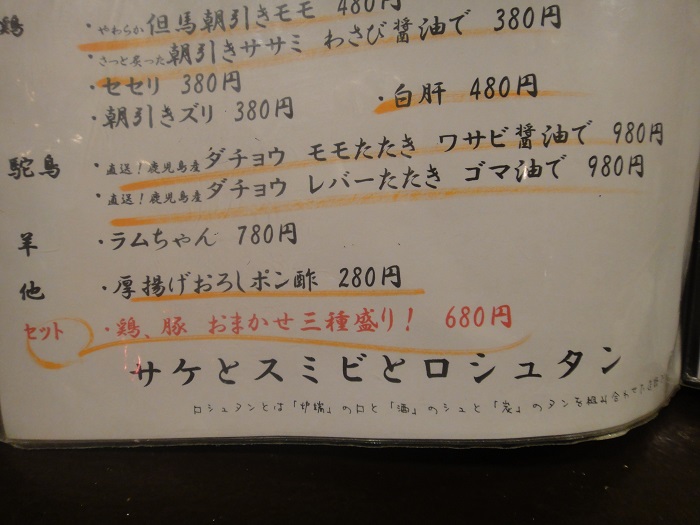 鶏
・やわらか但馬朝引きモモ 480円
・さっと炙った朝引きササミ わさび醤油で 380円
・セセリ 380円
・朝引きズリ 380円
・白肝 480円
駝鳥
・直送!鹿児島産ダチョウ モモたたき ワサビ醤油で 980円
・直送!鹿児島産ダチョウ レバーたたき ゴマ油で 980円
羊
・ラムちゃん 780円
他
・厚揚げおろしポン酢 280円
セット
・鶏、豚 おまかせ三種盛り! 680円
サケとスミビとロシュタン
ロシュタンとは「炉端」のロと「酒」のシュと「炭」のタンを組み合わせた